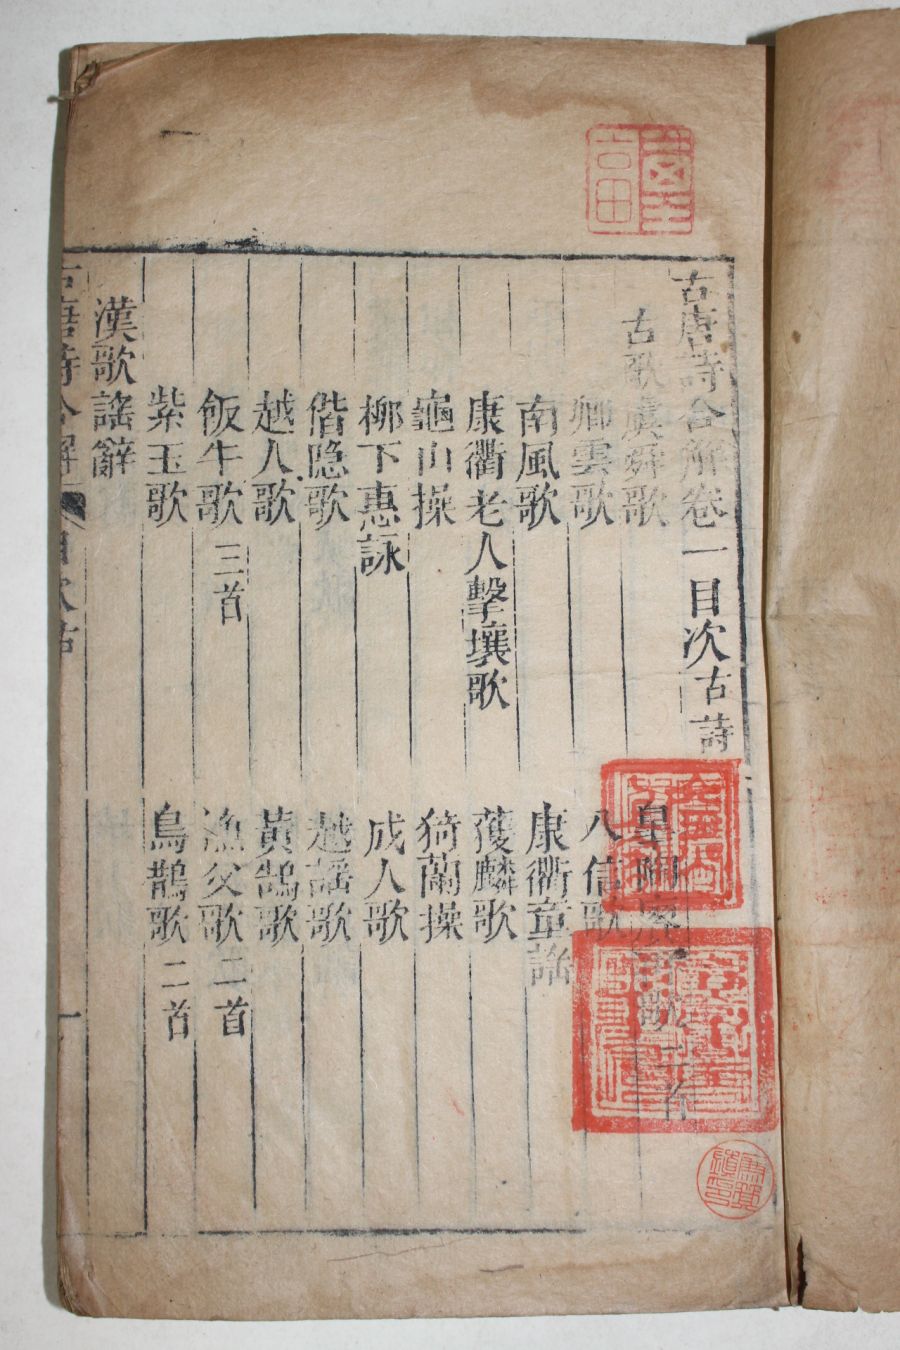 古唐詩合解卷一目次古詩
古歌虞舜歌
皋陶賡
卿雲歌
八伯歌
南風歌
康衢童謠
康衢老人擊壤歌
獲麟歌
龜山操
猗蘭操
柳下惠詠
成人歌
偕隐歌
越謠歌
越人歌
黃鵠歌
飯牛歌 三首
漁父歌 二首
紫玉歌
烏鵲歌 二首
漢歌謠辭
古唐詩合解
目次古
一